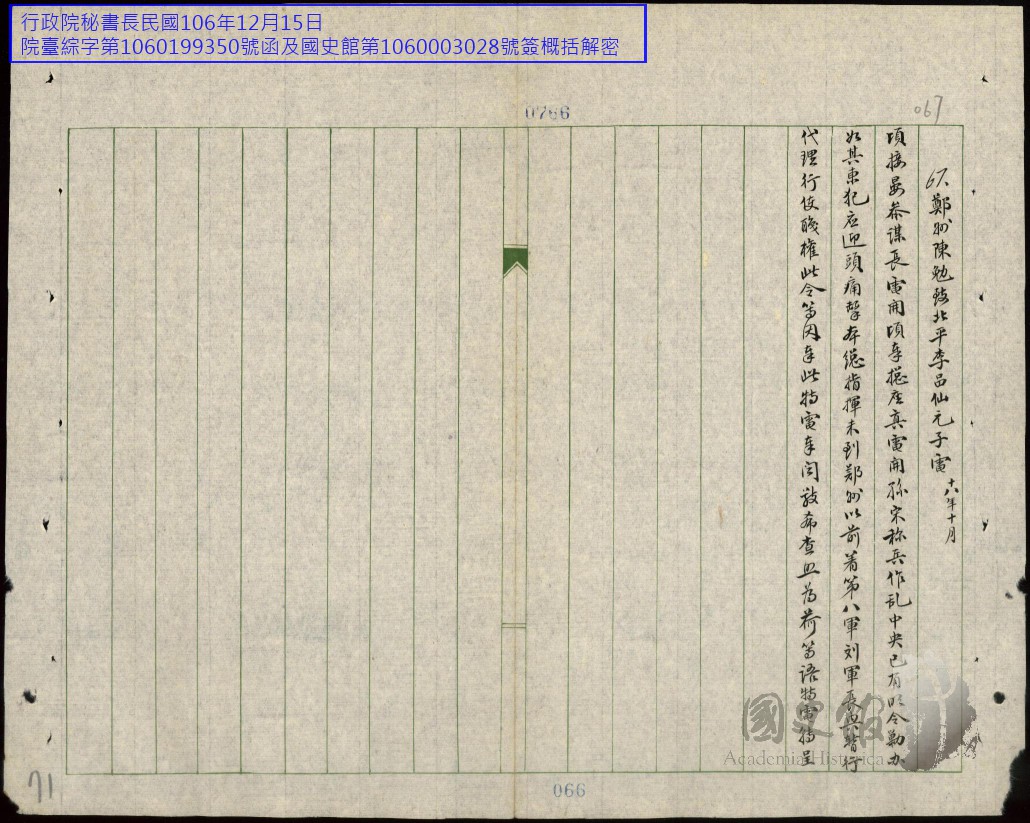 行政院秘書長民國106年12月15日
院臺綜字第1060199350號函及國史館第1060003028號簽概括解密
0766
067
67、鄭州陳勉致北平李品仙元子電 十八年十月
頃接晏叅謀長電開頃奉總座真電開孫宋称兵作乱中央已有明令勦办
如其東犯应迎頭痛擊本總指揮未到鄭州以前着第八軍刘軍長興暫行
代理行使職權此令等因奉此特電奉聞敬希查照為荷等語特電特呈
國史館
Academia Historica
066
71